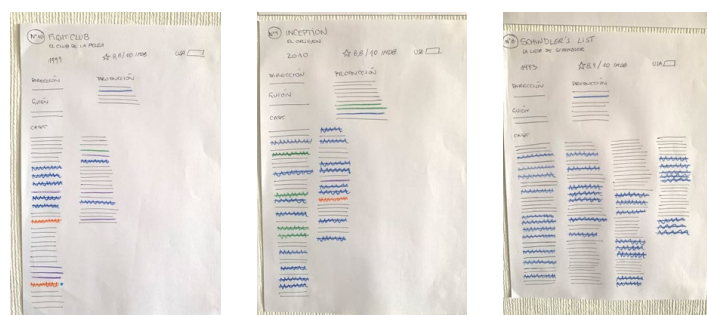 Nº10 FIGHT CLUB
EL CLUB DE LA PELEA
1999
☆ 8,8/10 IMDB
USA
DIRECCIÓN
PRODUCCIÓN
GUIÓN
CAST
INCEPTION
EL ORIGEN
2010
☆ 8,8/10 IMDB
USA
DIRECCIÓN
PRODUCCIÓN
GUIÓN
CAST
SCHINDLER'S LIST
LA LISTA DE SCHINDLER
1993
☆ 8,9/10 IMDB
USA
DIRECCIÓN
PRODUCCIÓN
GUIÓN
CAST